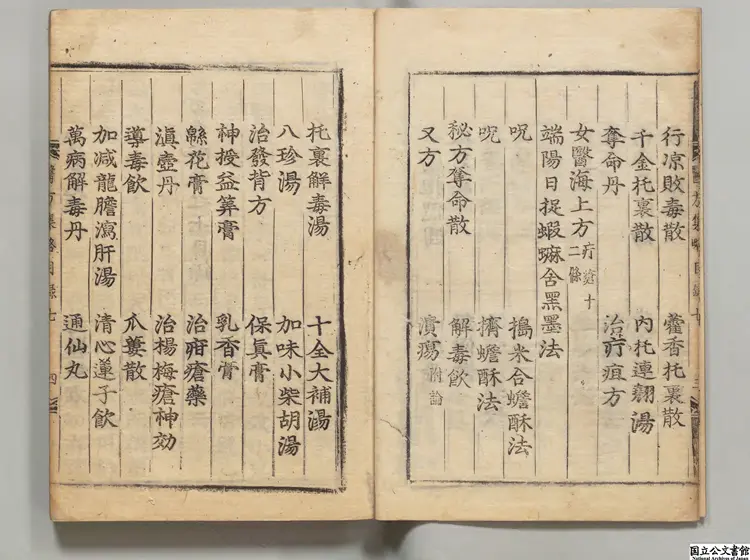 行凉敗毒散 藿香托裏散
千金托裏散 內托連翹湯
奪命丹 治疔疽方
女醫海上方 疔瘡十二條
端陽日捉蝦蟆舍黑墨法
呪 搗米合蟾酥法
呪 擠蟾酥法
秘方奪命散 解毒飲
又方 潰瘍 附論
托裏解毒湯 十全大補湯
八珍湯 加味小柴胡湯
治發背方 保眞膏
神授益筭膏 乳香膏
緜花膏 治疳瘡藥
滇壺丹 治楊梅瘡神効
導毒飲 瓜蔞散
加减龍膽瀉肝湯 清心蓮子飲
萬病解毒丹 通仙丸
醫方集略目錄七 四
国立公文書館
National Archives of Japan